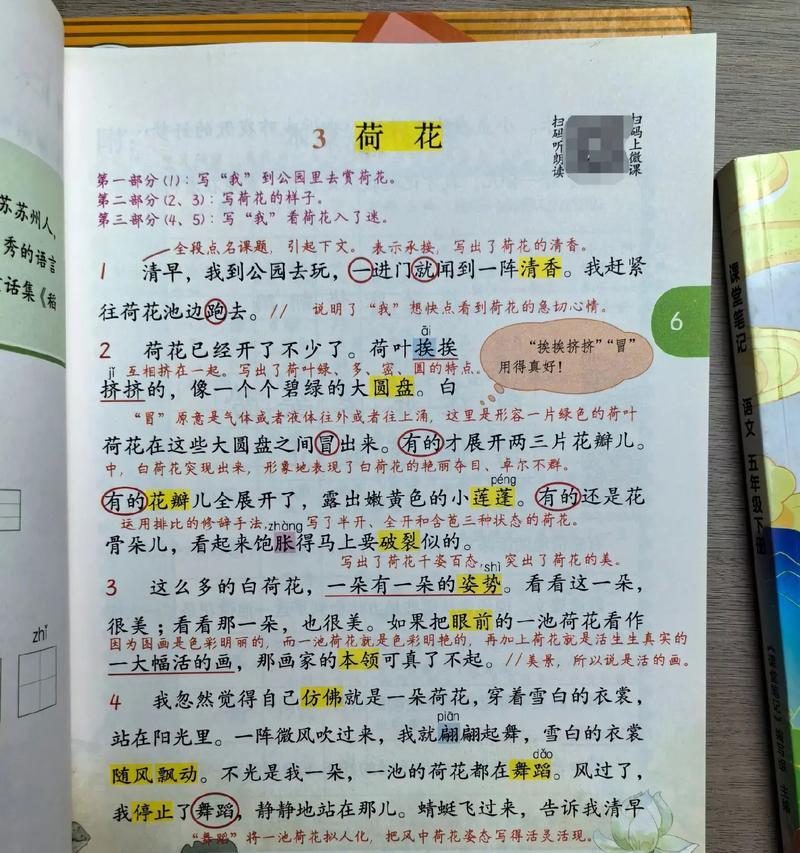 3 荷花
扫码听朗读
扫码上微课
第一部分(1)：写“我”到公园里去赏荷花。
第二部分(2、3)：写荷花的样子。
第三部分(4、5)：写“我”看荷花入了迷。
全段点名课题，引起下文。 表示承接，写出了荷花的清香。
1 清早，我到公园去玩，一进门就闻到一阵清香。我赶紧
往荷花池边跑去。// 说明了“我”想快点看到荷花的急切心情。
āi
2 荷花已经开了不少了。荷叶挨挨
“挨挨挤挤”“冒”
用得真好！
jǐ 互相挤在一起。写出了荷叶绿、多、密、圆的特点。
挤挤的，像一个个碧绿的大圆盘。白
“冒”原意是气体或者液体往外或者往上涌，这里是形容一片绿色的荷叶
荷花在这些大圆盘之间冒出来。有的才展开两三片花瓣儿。
中，白荷花突现出来，形象地表现了白荷花的艳丽夺目、卓尔不群。
péng
有的花瓣儿全展开了，露出嫩黄色的小莲蓬。有的还是花
运用排比的修辞手法，zhàng写了半开、全开和含苞三种状态的荷花。
骨朵儿，看起来饱胀得马上要破裂似的。
写出了荷花千姿百态，shì突出了荷花的美。
3 这么多的白荷花，一朵有一朵的姿势。看看这一朵，
很美；看看那一朵，也很美。如果把眼前的一池荷花看作
因为图画是色彩明丽的，而一池荷花就是色彩明艳的，再加上荷花就是活生生真实的
一大幅活的画，那画家的本领可真了不起。//美景，所以说是活的画。
4 我忽然觉得自己仿佛就是一朵荷花，穿着雪白的衣裳，
piān
站在阳光里。一阵微风吹过来，我就翩翩起舞，雪白的衣裳
dǎo
随风飘动。不光是我一朵，一池的荷花都在舞蹈。风过了，
我停止了舞蹈，静静地站在那儿。蜻蜓飞过来，告诉我清早
“舞蹈”将一池荷花拟人化，把风中荷花姿态写得活灵活现。
6
苏苏州人，
秀的语言
话集《稻
zhǐ
课堂笔记
语文 五年级下册
《课堂笔记》
主编